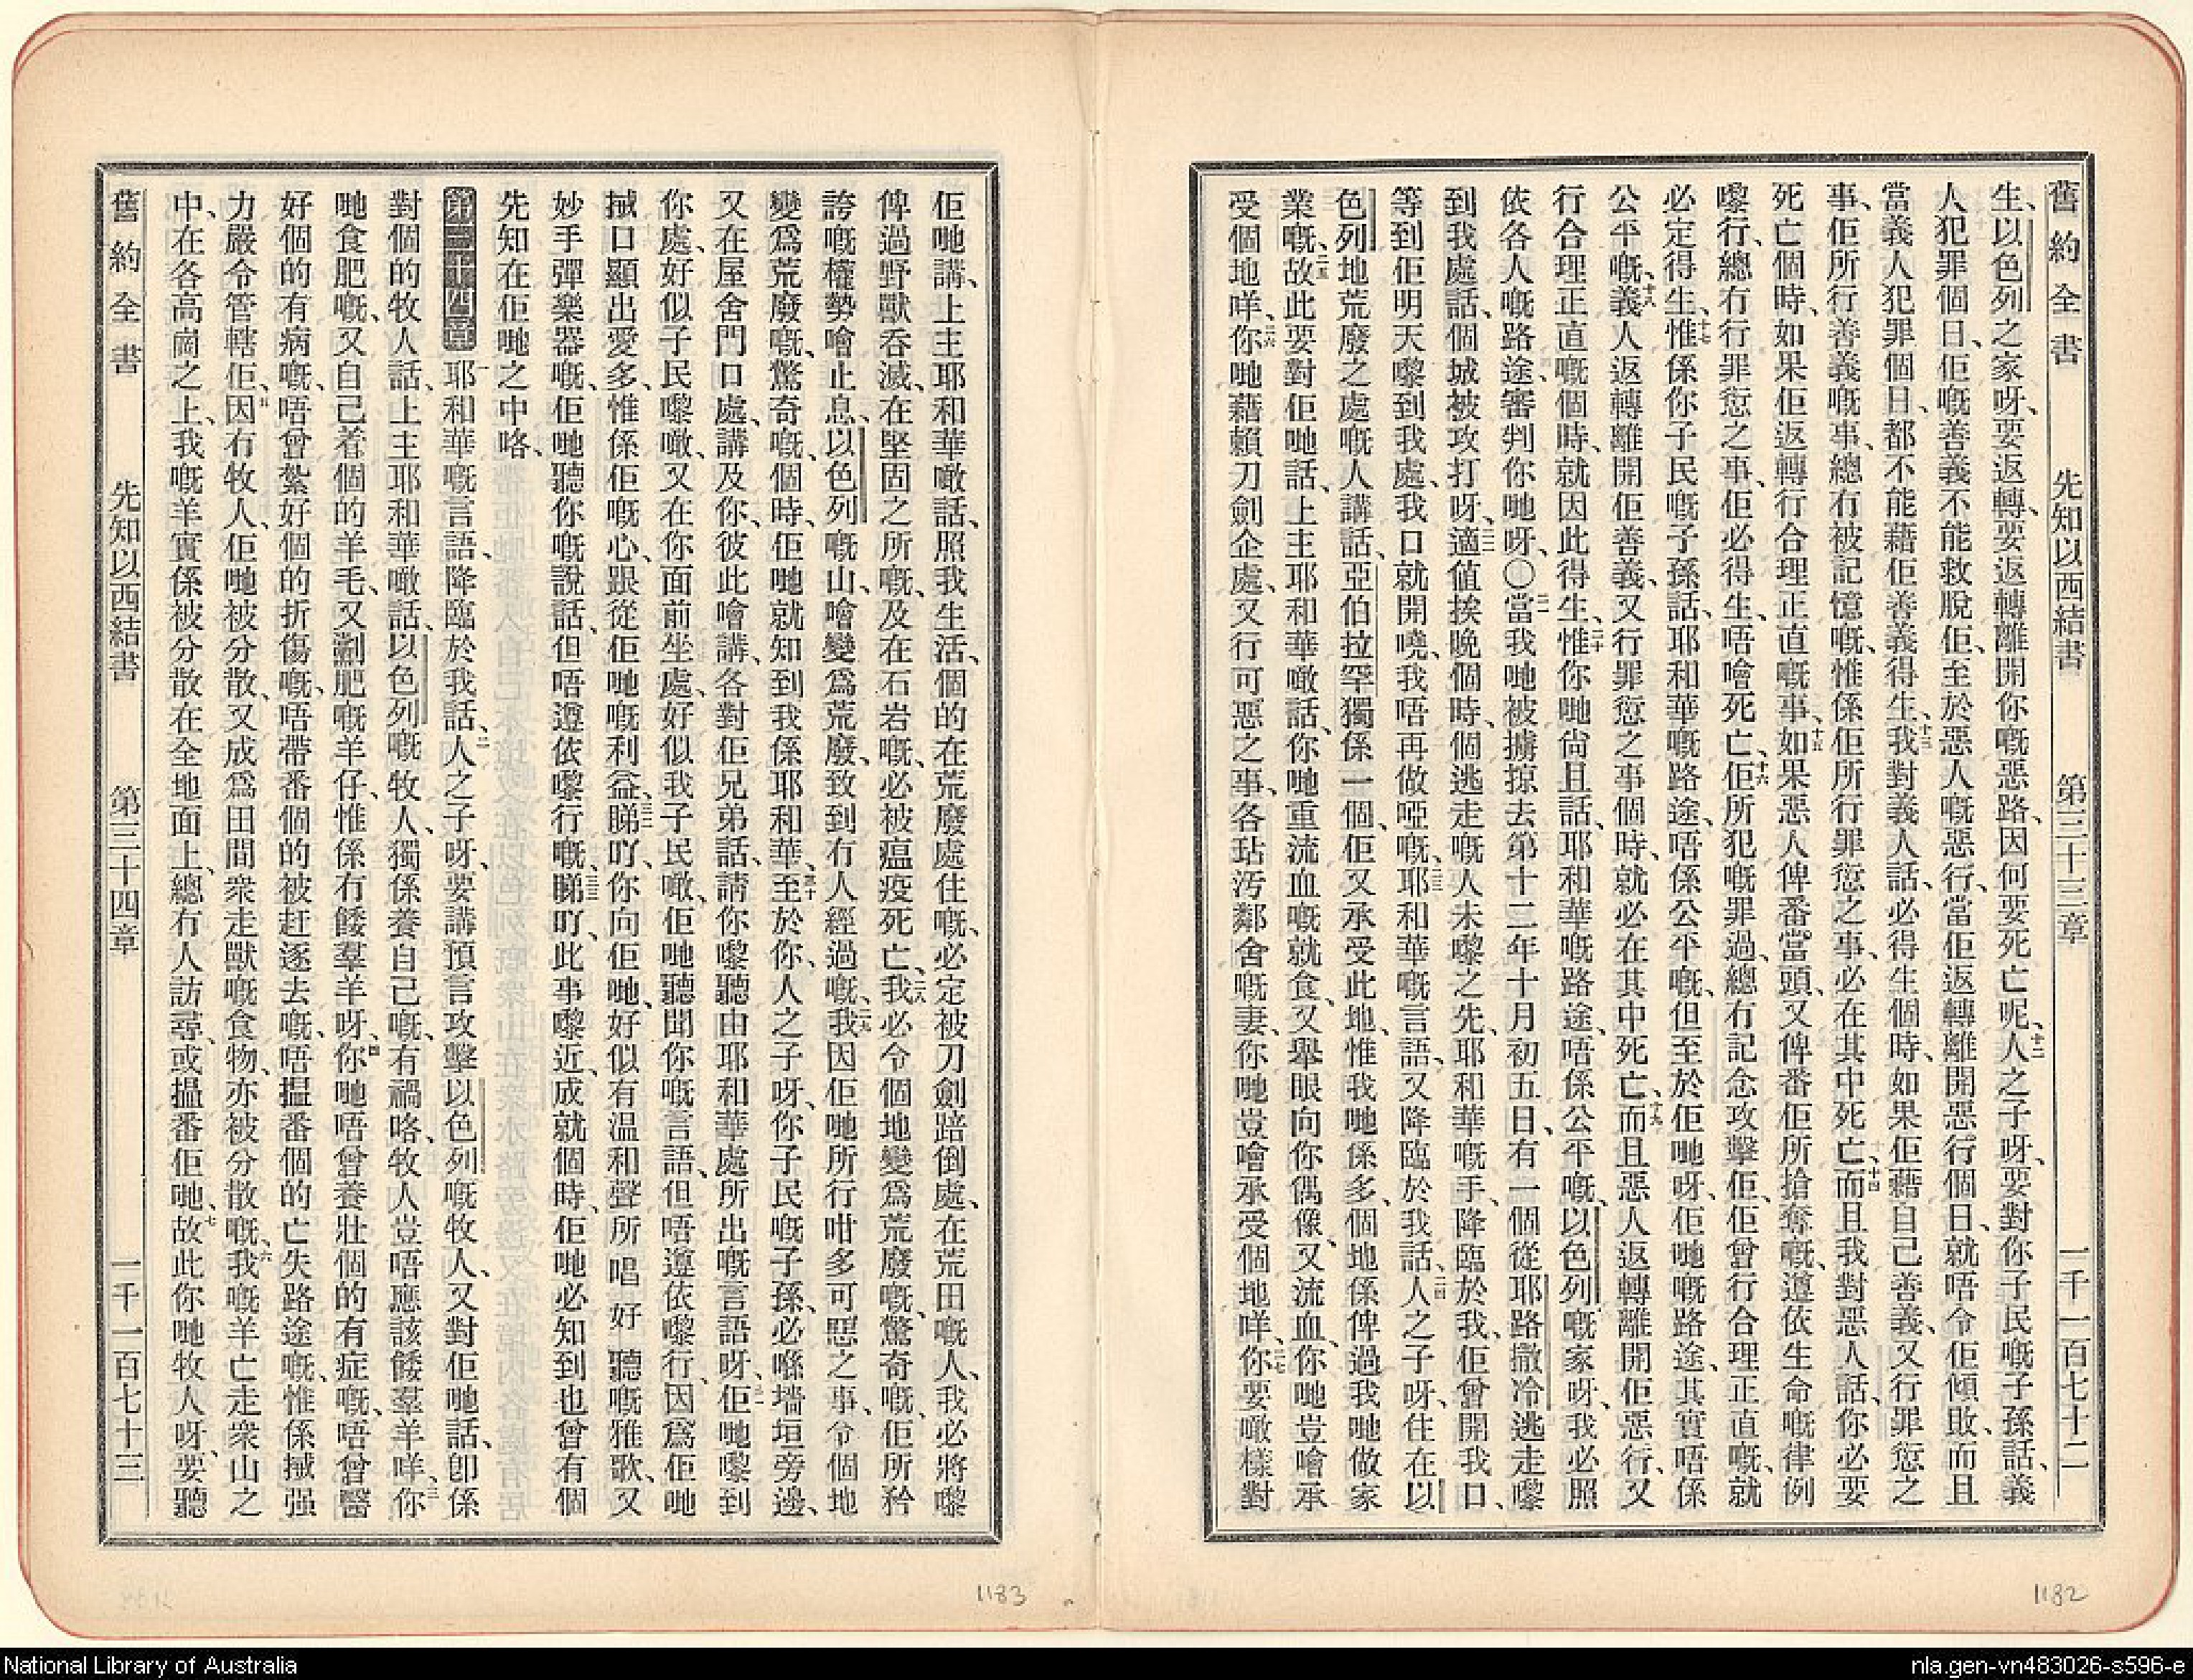 舊約全書　先知以西結書　第三十三章　一千一百七十二
生、以色列之家呀、要返轉、要返轉離開你嘅惡路、因何要死亡呢、十二人之子呀、要對你子民嘅子孫話、義
人犯罪個日、佢嘅善義不能救脫佢、至於惡人嘅惡行、當佢返轉離開惡行個日、就唔令佢傾敗、而且
當義人犯罪個日、都不能藉佢善義得生、十三我對義人話、必得生個時、如果佢藉自己善義、又行罪愆之
事、佢所行善義嘅事、總冇被記憶嘅、惟係佢所行罪愆之事、必在其中死亡、十四而且我對惡人話、你必要
死亡個時、如果佢返轉行合理正直嘅事、十五如果惡人俾番當頭、又俾番佢所搶奪嘅、遵依生命嘅律例
嚟行、總冇行罪愆之事、佢必得生、唔噲死亡、十六佢所犯嘅罪過、總冇記念攻擊佢、佢曾行合理正直嘅、就
必定得生、十七惟係你子民嘅子孫話、耶和華嘅路途、唔係公平嘅、但至於佢哋呀、佢哋嘅路途、其實唔係
公平嘅、十八義人返轉離開佢善義、又行罪愆之事個時、就必在其中死亡、十九而且惡人返轉離開佢惡行、又
行合理正直嘅個時、就因此得生、二十惟你哋尙且話、耶和華嘅路途、唔係公平嘅、以色列嘅家呀、我必照
依各人嘅路途、審判你哋呀、〇二一當我哋被擄掠去第十二年十月初五日、有一個從耶路撒冷逃走嚟
到我處話、個城被攻打呀、二二適值挨晚個時、個逃走嘅人未嚟之先、耶和華嘅手、降臨於我、佢曾開我口、
等到佢明天嚟到我處、我口就開嘵、我唔再做啞嘅、二三耶和華嘅言語、又降臨於我話、二四人之子呀、住在以
色列地荒廢之處嘅人講話、亞伯拉罕獨係一個、佢又承受此地、惟我哋係多、個地係俾過我哋做家
業嘅、二五故此要對佢哋話、上主耶和華噉話、你哋連流血嘅就食、又舉眼向你偶像、又流血、你哋豈噲承
受個地咩、二六你哋藉賴刀劍企處、又行可惡之事、各玷汚鄰舍嘅妻、你哋豈噲承受個地咩、二七你要噉樣對
佢哋講、上主耶和華噉話、照我生活、個的在荒廢處住嘅、必定被刀劍踣倒處、在荒田嘅人、我必將嚟
俾過野獸呑滅、在堅固之所嘅、及在石岩嘅、必被瘟疫死亡、二八我必令個地變爲荒廢嘅、驚奇嘅、佢所矜
誇嘅權勢噲止息、以色列嘅山、噲變爲荒廢、致到冇人經過嘅、二九我因佢哋所行咁多可惡之事、令個地
變爲荒廢嘅、驚奇嘅、個時、佢哋就知到我係耶和華、三十至於你、人之子呀、你子民嘅子孫、必喺墻垣旁邊、
又在屋舍門口處、講及你、彼此噲講、各對佢兄弟話、請你嚟聽由耶和華處所出嘅言語呀、三一佢哋嚟到
你處、好似子民嚟噉、又在你面前坐處、好似我子民噉、佢哋聽聞你嘅言語、但唔遵依嚟行、因爲佢哋
𢬿口顯出愛多、惟係佢嘅心、跟從佢哋嘅利益、三二睇吖、你向佢哋、好似有温和聲所唱好聽嘅雅歌、又
妙手彈樂器嘅、佢哋聽你嘅說話、但唔遵依嚟行嘅、三三睇吖、此事嚟近、成就個時、佢哋必知到也曾有個
先知在佢哋之中咯、
第三十四章　一耶和華嘅言語、降臨於我話、二人之子呀、要講預言攻擊以色列嘅牧人、又對佢哋話、卽係
對個的牧人話、上主耶和華噉話、以色列嘅牧人、獨係養自己嘅、有禍咯、牧人豈唔應該餧羣羊咩、三你
哋食肥嘅、又自己着個的羊毛、又劏肥嘅羊仔、惟係冇餧羣羊呀、四你哋唔曾養壯個的有症嘅、唔曾醫
好個的有病嘅、唔曾紮好個的折傷嘅、唔帶番個的被赶逐去嘅、唔搵番個的亡失路途嘅、惟係𢬿强
力嚴令管轄佢、五因冇牧人、佢哋被分散、又成爲田間衆走獸嘅食物、亦被分散嘅、六我嘅羊亡走衆山之
中、在各高崗之上、我嘅羊實係被分散在全地面上、總冇人訪尋、或搵番佢哋、七故此你哋牧人呀、要聽
舊約全書　先知以西結書　第三十四章　一千一百七十三
1183
1182
National Library of Australia
nla.gen-vn483026-s596-e